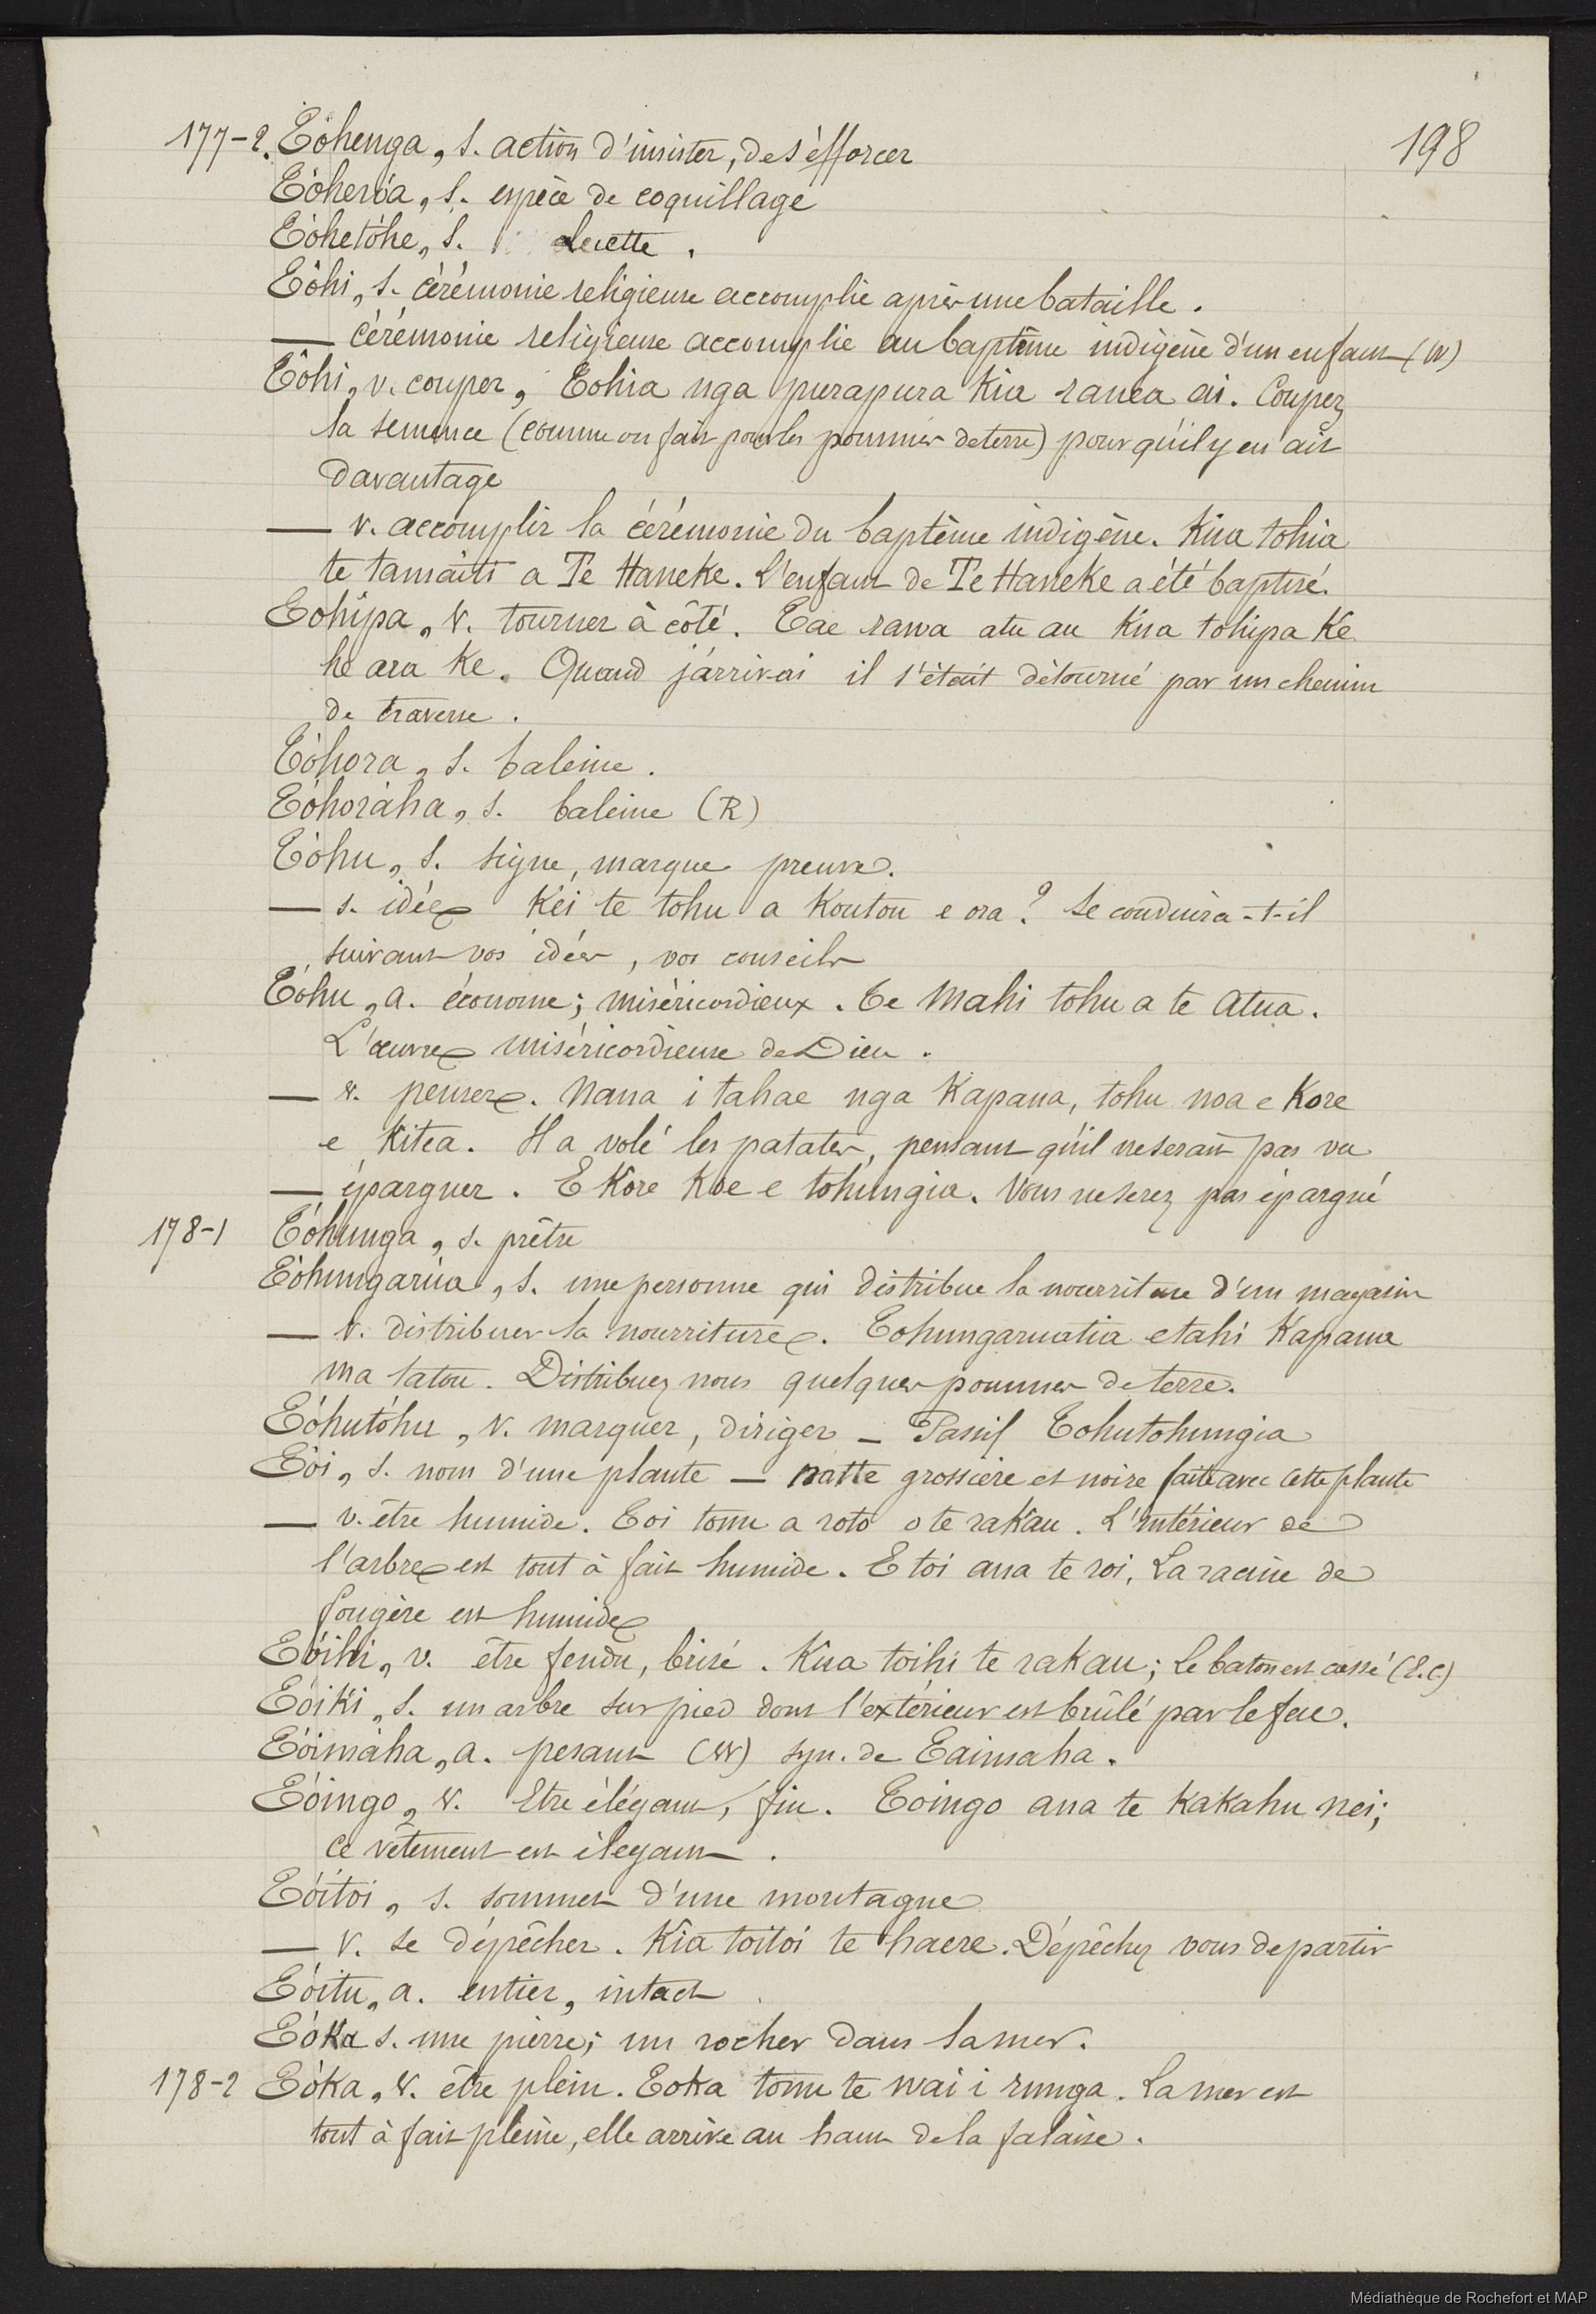 198
177-2. Tóhenga, s. action d'insister, de s'éfforcer
Tóheróa, s. espèce de coquillage
Tóhetóhe, s. luette.
Tôhi, s. cérémonie religieuse accomplie après une bataille.
— cérémonie religieuse accomplie au baptême indigène d'un enfant (W)
Tôhi, v. couper, Tohia nga purapura kia ranea ai. Coupez
la semence (comme on fait pour les pommes de terre) pour qu'il y en ait
davantage
— v. accomplir la cérémonie du baptême indigène. Kua tohia
te tamaiti a Te Haneke. L'enfant de Te Haneke a été baptisé.
Tohipa, v. tourner à côté. Tae rawa atu au kua tohipa ke
he ara ke. Quand j'arrivai il s'était détourné par un chemin
de traverse.
Tóhora, s. baleine.
Tóhoràha, s. baleine (R)
Tóhu, s. signe, marque preuve.
— s. idée Kei te tohu a koutou e ora? Se conduira-t-il
suivant vos idées, vos conseils
Tóhu, a. économe; miséricordieux. Te mahi tohu a te Atua.
L'œuvre miséricordieuse de Dieu.
— v. penser. Nana i tahae nga Kapana, tohu noa e kore
e kitea. Il a volé les patates, pensant qu'il ne serait pas vu
— épargner. E kore koe e tohungia. Vous ne serez pas épargné
178-1 Tóhunga, s. prêtre
Tóhungarùa, s. une personne qui distribue la nourriture d'un magasin
— v. distribuer la nourriture. Tohungaruatia etahi Kapana
ma tatou. Distribuez nous quelques pommes de terre.
Tóhutóhu, v. marquer, diriger — Passif Tohutohungia
Tói, s. nom d'une plante — natte grossière et noire faite avec cette plante
— v. être humide. Toi tonu a roto o te rakau. L'intérieur de
l'arbre est tout à fait humide. E toi ana te roi, La racine de
fougère est humide
Tóihi, v. être fendu, brisé. Kua toihi te rakau; le baton est cassé (E.C.)
Tóiki, s. un arbre sur pied dont l'extérieur est brûlé par le feu.
Tóimáha, a. pesant (W) syn. de Taimaha.
Tóingo, v. Etre élégant, fin. Toingo ana te kakahu nei;
ce vêtement est élegant.
Tóitoi, s. sommet d'une montagne
— v. se dépêcher. Kia toitoi te haere. Dépêchez vous de partir
Tóitu, a. entier, intact
Tóka s. une pierre; un rocher dans la mer.
178-2 Tóka, v. être plein. Toka tonu te wai i runga. La mer est
tout à fait pleine, elle arrive au haut de la falaise.
Médiathèque de Rochefort et MAP